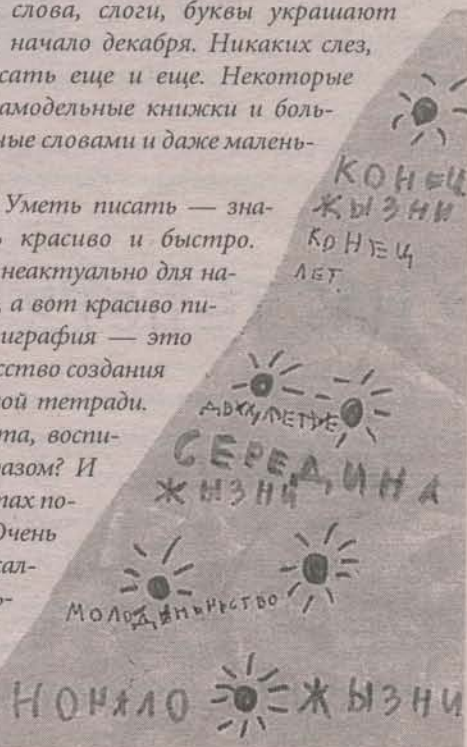 слова, слоги, буквы украшают
начало декабря. Никаких слез,
сать еще и еще. Некоторые
амодельные книжки и боль-
ные словами и даже малень-
Уметь писать — зна-
красиво и быстро.
неактуально для на-
, а вот красиво пи-
играфия — это
сство создания
ой тетради.
та, воспи-
разом? И
тах по-
Очень
кал-
КОНЕЦ
ЖЫЗНИ
КОНЕЦ
ЛЕТ.
СЕРЕДИНА
ЖЫЗНИ
НОЧАЛО ЖЫЗНИ